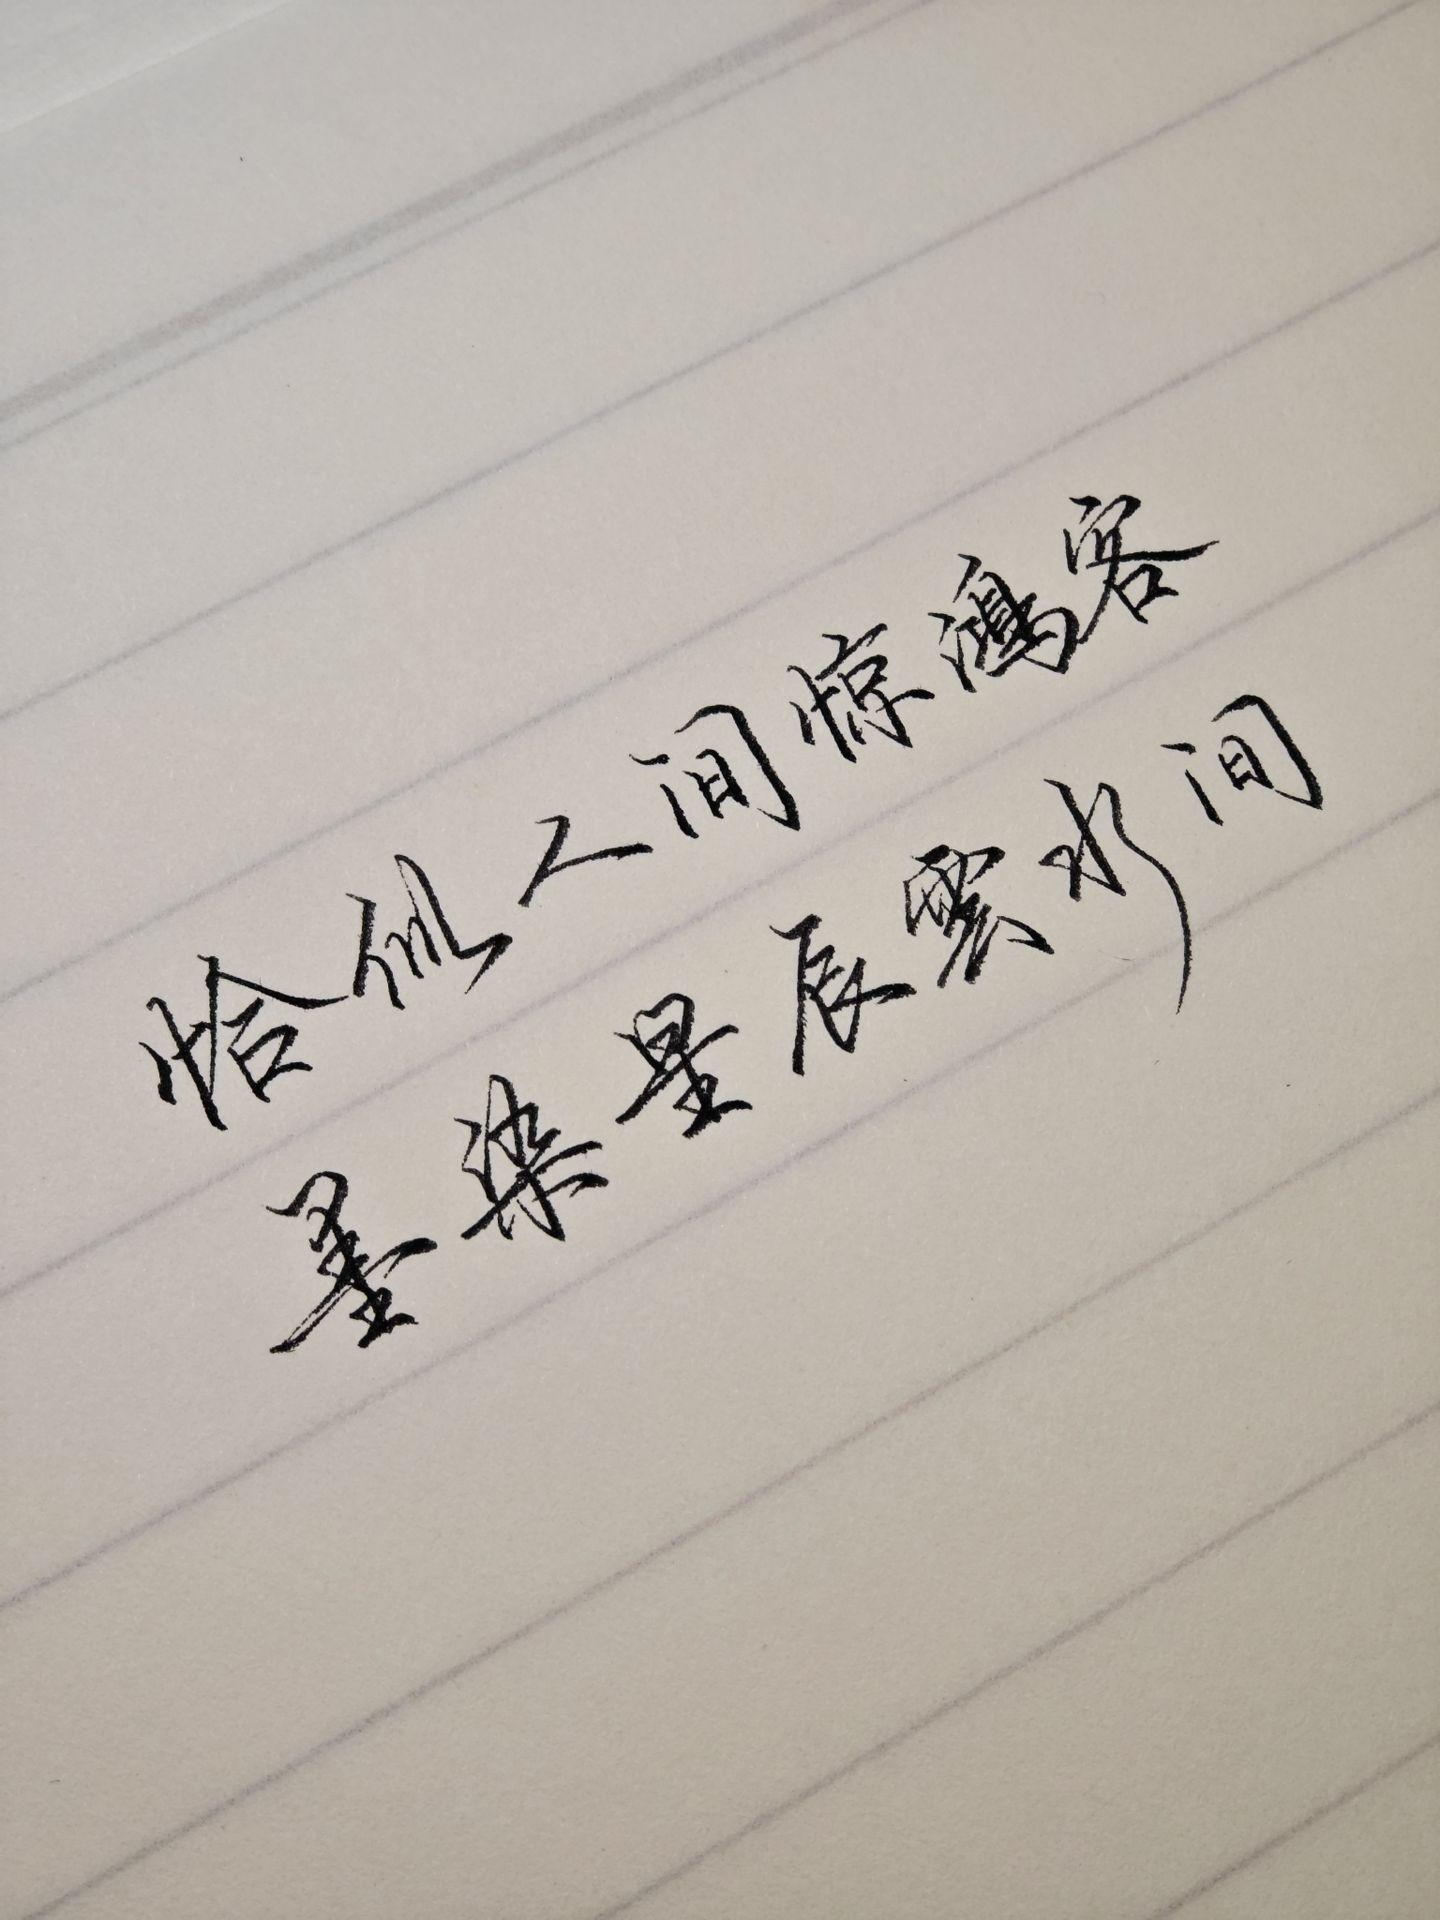 恰似人间惊鸿客
墨染星辰雲水间